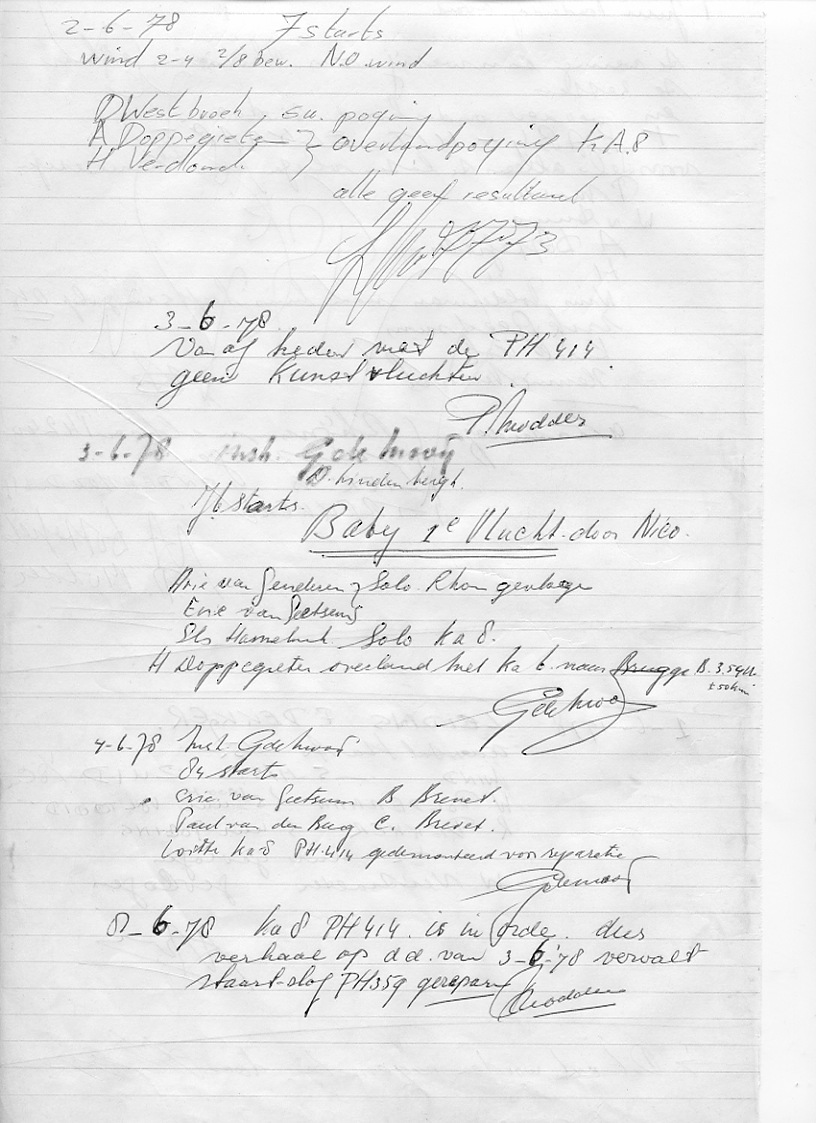 2-6-78 7 starts
wind 2-4 2/8 bew. N.O. wind
D Westbroek, s.u. poging
A Doppegieter } overlandpoging KA.8
H Verdonck
alle geef resultaat
3-6-78
Vanaf heden met de PH 414
geen kunstvluchten
P. Modder
3-6-78 inst. G de Knooy
D. Lindenbergh.
76 starts.
Baby 1e Vlucht door Nico.
Arie van Genderen } Solo Rhon gevlogen
Eric van
Els Solo ka 8.
H Doppegieter overland met ka 6 naar Brugge B. 3.54u
± 50km
4-6-78 Inst. G de
84 starts
Eric van B Brevet.
Paul van den Burg C. Brevet.
ka 8 PH.414 gedemonteerd voor reparatie
8-6-78 ka 8 PH 414 is in orde. dus
verhaal op d.d. van 3-6-78 vervalt
staart-slof PH359
Modder